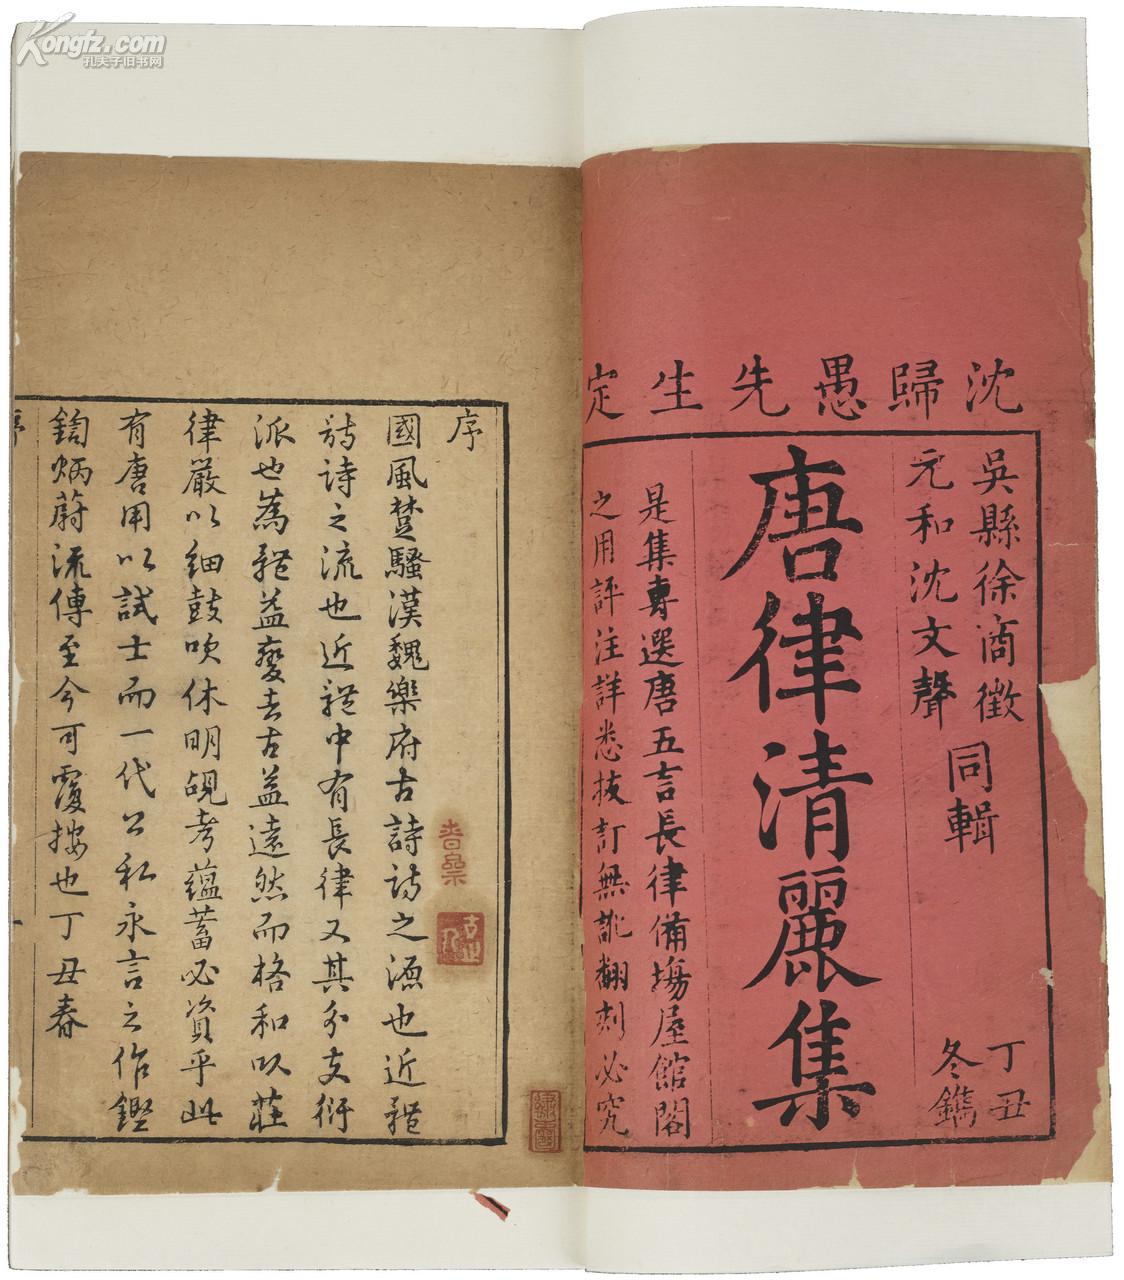 Kongfz.com
孔夫子旧书网
沈歸愚先生定
吳縣徐商徵
元和沈文聲
同輯
丁丑
冬鐫
唐律清麗集
是集專選唐五言長律備塲屋館閣
之用評注詳悉挍訂無訛翻刻必究
序
國風楚騷漢魏樂府古詩詩之源也近體
詩詩之流也近體中有長律又其分支衍
派也為體益變去古益遠然而格和以莊
律嚴以細鼓吹休明覘考蘊蓄必資乎此
有唐用以試士而一代公私永言之作鏗
鍧炳蔚流傳至今可覆按也丁丑春
序
一